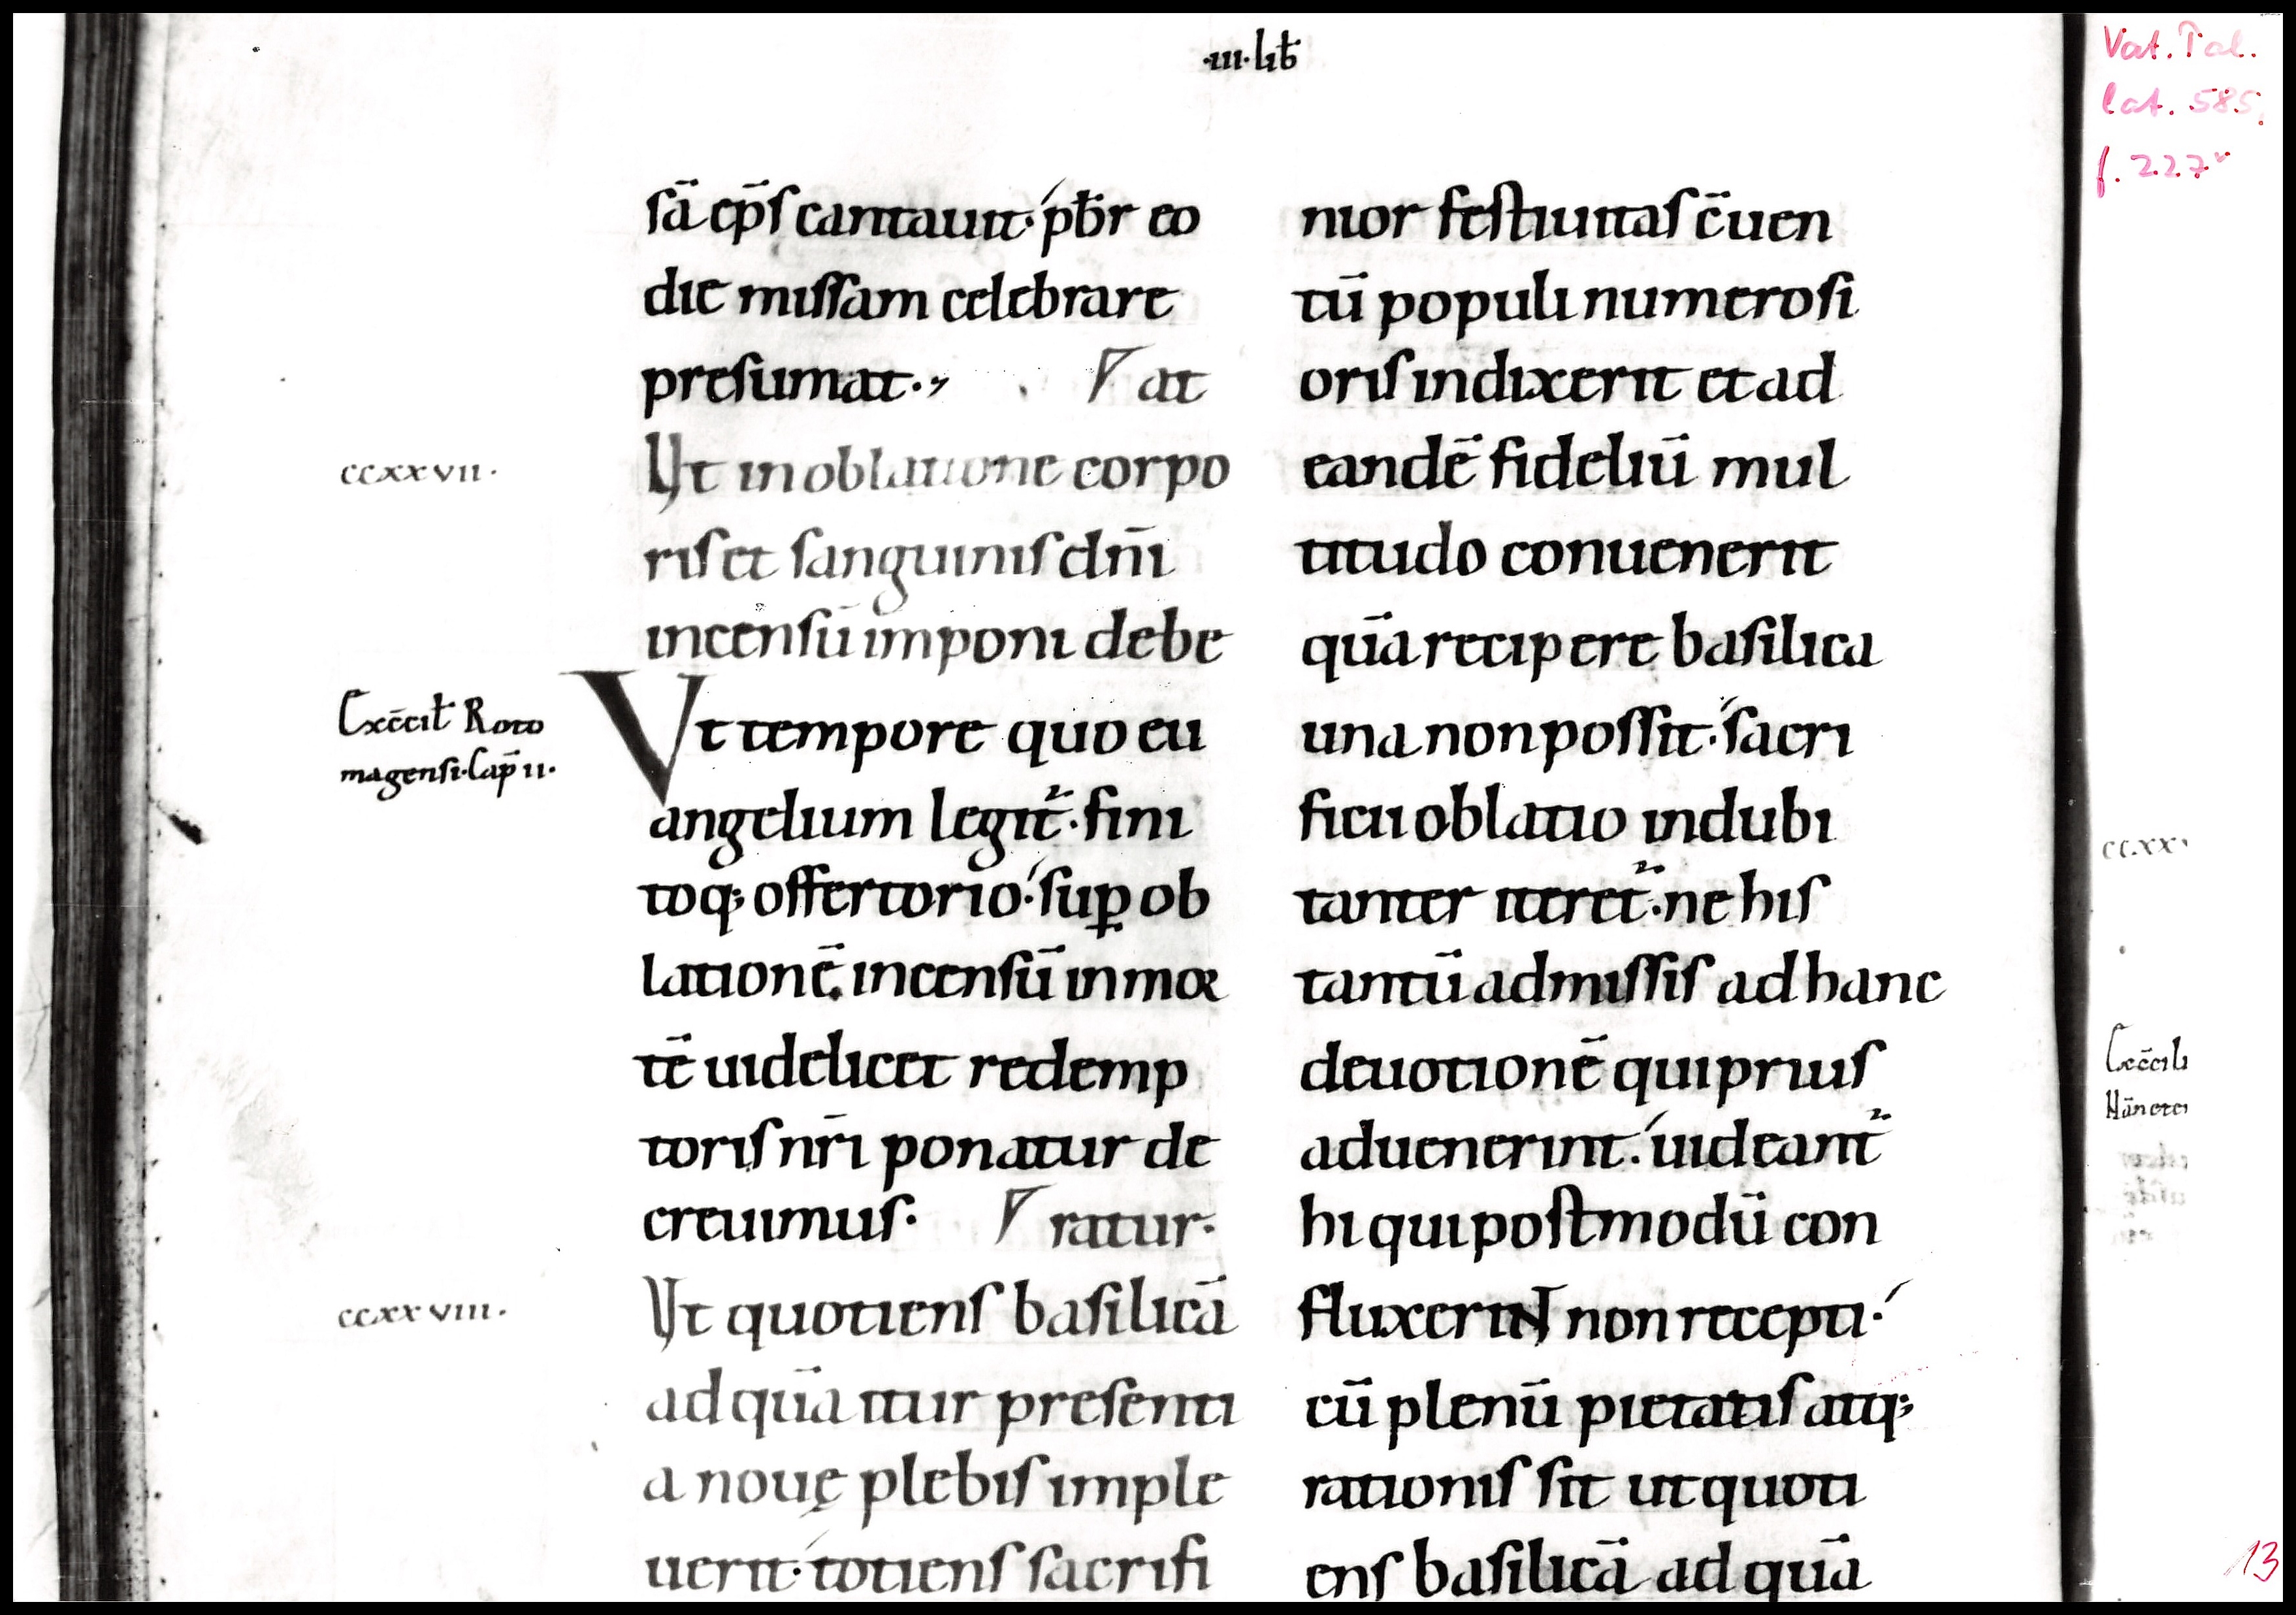 ·III· lib̄
Vat. Pal.
lat. 585,
f. 227v
sā ep̄s cantauit· pb̄r eo
die missam celebrare
presumat·, at
ccxxvii·
Ut in oblatione corpo
ris et sanguinis dn̄i
incensū imponi debe
Ex c̄cił Roto
magensi· Cap̄ ii·
Vt tempore quo eu
angelium legit᷑· fini
toq; offertorio· sup̲ ob
lationē incensū in mor
tē uidelicet redemp
toris nr̄i ponatur de
creuimus· ratur·
ccxxviii·
Ut quotiens basilicā
ad quā itur presenti
a nouę plebis imple
uerit· totiens sacrifi
nior festiuitas c̄uen
tū populi numerosi
oris indixerit et ad
eandē fideliū mul
titudo conuenerit
quā recipere basilica
una non possit· sacri
ficii oblatio indubi
tanter iteret᷑· ne his
tantū admissis ad hanc
deuotionē qui prius
aduenerint· uideant᷑
hi qui postmodū con
fluxeriNT non recepti·
cū plenū pietatis atq;
rationis sit ut quoti
ens basilicā ad quā
ccxx
13